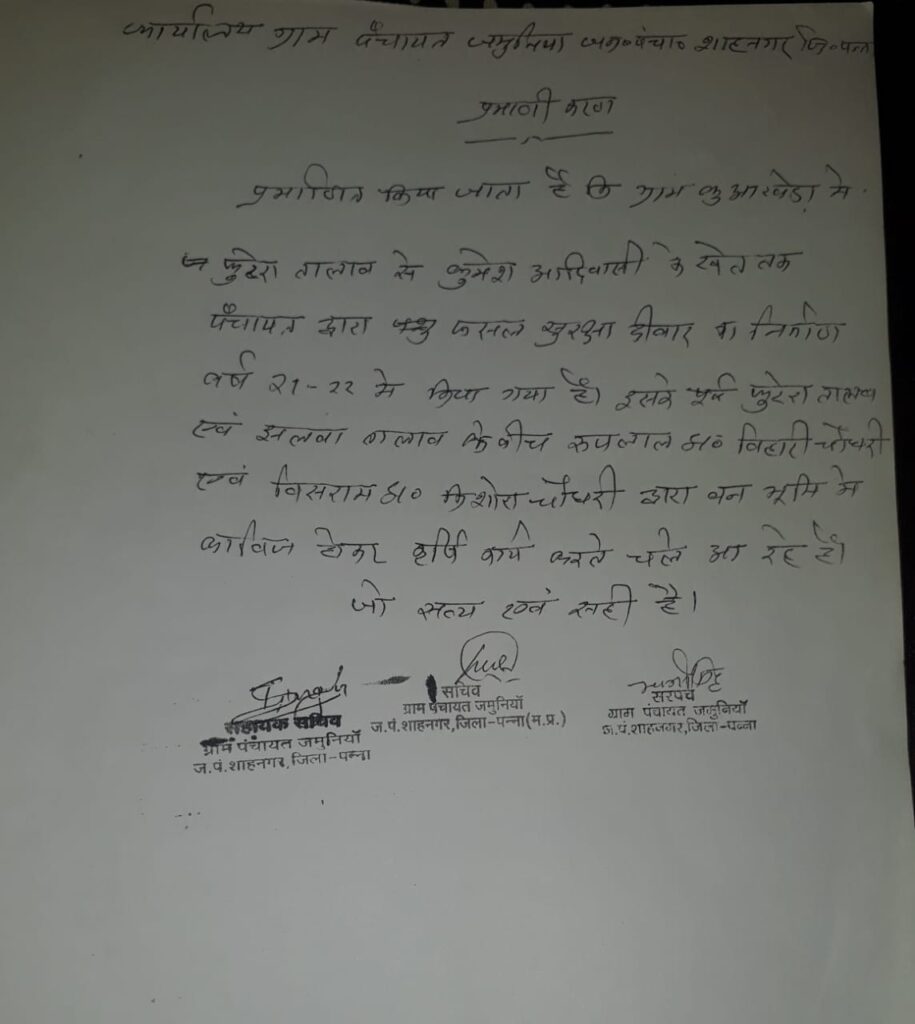 कार्यालय ग्राम पँचायत जमुनिया जन॰पंचा॰ शाहनगर जि॰पन्ना
प्रमाणी करण
प्रमाणित किया जाता है कि ग्राम कुआरखेड़ा मे
फुटेरा तालाव से कुमेश आदिवासी के खेत तक
पँचायत द्वारा फसल सुरक्षा दीवार का निर्माण
वर्ष २१-२२ मे किया गया है। इसके पूर्व फुटेरा तालाव
एवं झलवा तालाव के बीच रुपलाल S/० विहारी चौधरी
एवं विसराम S/० किशोरा चौधरी द्वारा वन भूमि मे
काविज होकर कृषि कार्य करते चले आ रहे है।
जो सत्य एवं सही है।
सहायक सचिव
ग्राम पंचायत जमुनियाँ
ज.पं.शाहनगर,जिला-पन्ना
सचिव
ग्राम पंचायत जमुनियाँ
ज.पं.शाहनगर,जिला-पन्ना(म.प्र.)
सरपंच
ग्राम पंचायत जमुनियाँ
ज.पं.शाहनगर,जिला-पन्ना